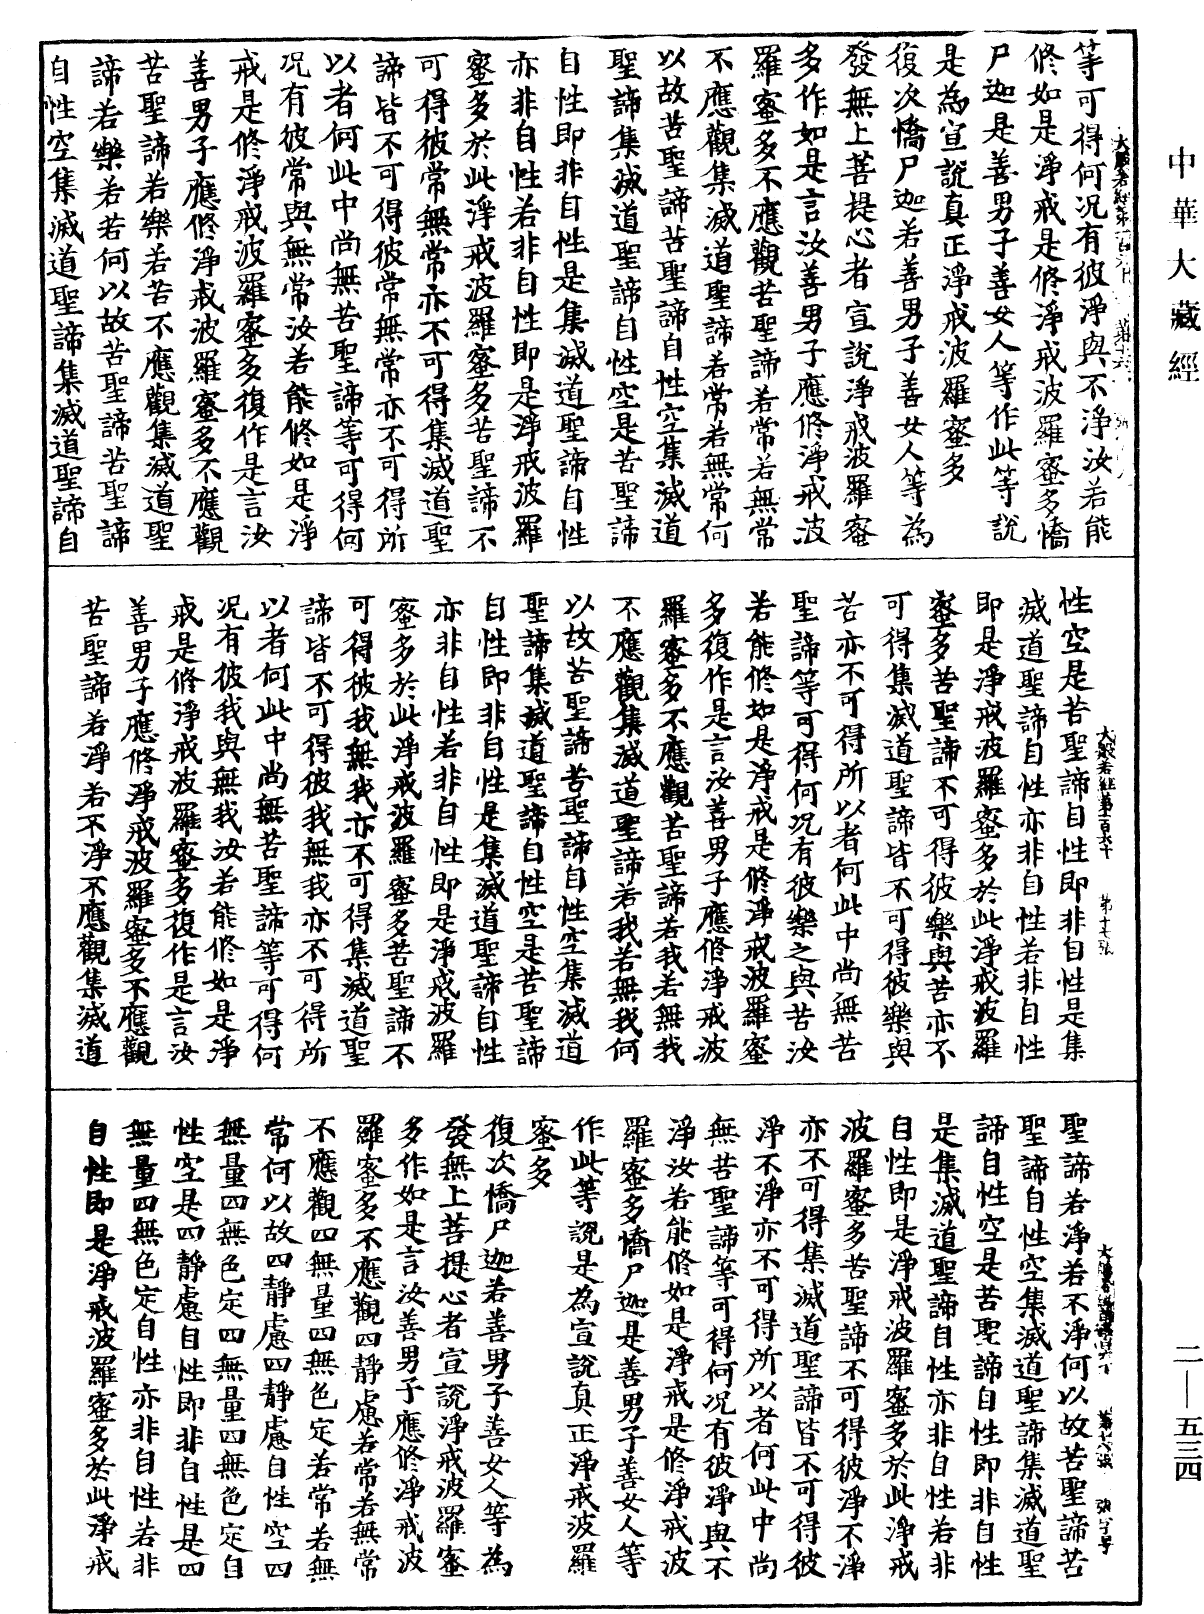 中華大藏經
等可得何況有彼淨與不淨汝若能
修如是淨戒是修淨戒波羅蜜多憍
尸迦是善男子善女人等作此等說
是為宣說真正淨戒波羅蜜多
復次憍尸迦若善男子善女人等為
發無上菩提心者宣說淨戒波羅蜜
多作如是言汝善男子應修淨戒波
羅蜜多不應觀苦聖諦若常若無常
不應觀集滅道聖諦若常若無常何
以故苦聖諦苦聖諦自性空集滅道
聖諦集滅道聖諦自性空是苦聖諦
自性即非自性是集滅道聖諦自性
亦非自性若非自性即是淨戒波羅
蜜多於此淨戒波羅蜜多苦聖諦不
可得彼常無常亦不可得集滅道聖
諦皆不可得彼常無常亦不可得所
以者何此中尚無苦聖諦等可得何
況有彼常與無常汝若能修如是淨
戒是修淨戒波羅蜜多復作是言汝
善男子應修淨戒波羅蜜多不應觀
苦聖諦若樂若苦不應觀集滅道聖
諦若樂若苦何以故苦聖諦苦聖諦
自性空集滅道聖諦集滅道聖諦自
大般若經第一百六十
性空是苦聖諦自性即非自性是集
滅道聖諦自性亦非自性若非自性
即是淨戒波羅蜜多於此淨戒波羅
蜜多苦聖諦不可得彼樂與苦亦不
可得集滅道聖諦皆不可得彼樂與
苦亦不可得所以者何此中尚無苦
聖諦等可得何況有彼樂之與苦汝
若能修如是淨戒是修淨戒波羅蜜
多復作是言汝善男子應修淨戒波
羅蜜多不應觀苦聖諦若我若無我
不應觀集滅道聖諦若我若無我何
以故苦聖諦苦聖諦自性空集滅道
聖諦集滅道聖諦自性空是苦聖諦
自性即非自性是集滅道聖諦自性
亦非自性若非自性即是淨戒波羅
蜜多於此淨戒波羅蜜多苦聖諦不
可得彼我無我亦不可得集滅道聖
諦皆不可得彼我無我亦不可得所
以者何此中尚無苦聖諦等可得何
況有彼我與無我汝若能修如是淨
戒是修淨戒波羅蜜多復作是言汝
善男子應修淨戒波羅蜜多不應觀
苦聖諦若淨若不淨不應觀集滅道
大般若經第一百六十 第十七張
聖諦若淨若不淨何以故苦聖諦苦
聖諦自性空集滅道聖諦集滅道聖
諦自性空是苦聖諦自性即非自性
是集滅道聖諦自性亦非自性若非
自性即是淨戒波羅蜜多於此淨戒
波羅蜜多苦聖諦不可得彼淨不淨
亦不可得集滅道聖諦皆不可得彼
淨不淨亦不可得所以者何此中尚
無苦聖諦等可得何況有彼淨與不
淨汝若能修如是淨戒是修淨戒波
羅蜜多憍尸迦是善男子善女人等
作此等說是為宣說真正淨戒波羅
蜜多
復次憍尸迦若善男子善女人等為
發無上菩提心者宣說淨戒波羅蜜
多作如是言汝善男子應修淨戒波
羅蜜多不應觀四靜慮若常若無常
不應觀四無量四無色定若常若無
常何以故四靜慮四靜慮自性空四
無量四無色定四無量四無色定自
性空是四靜慮自性即非自性是四
無量四無色定自性亦非自性若非
自性即是淨戒波羅蜜多於此淨戒
二—五三四